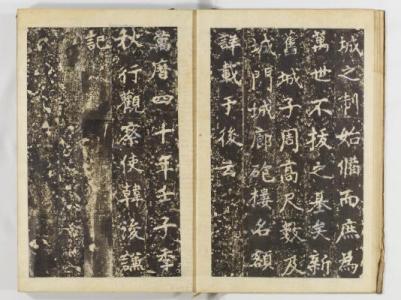 城之制始備而庶為
萬世不拔之基矣新
舊城子周高尺數及
城門城廊砲樓名額
詳載于後云
萬曆四十年壬子季
秋行觀察使韓浚謙
記